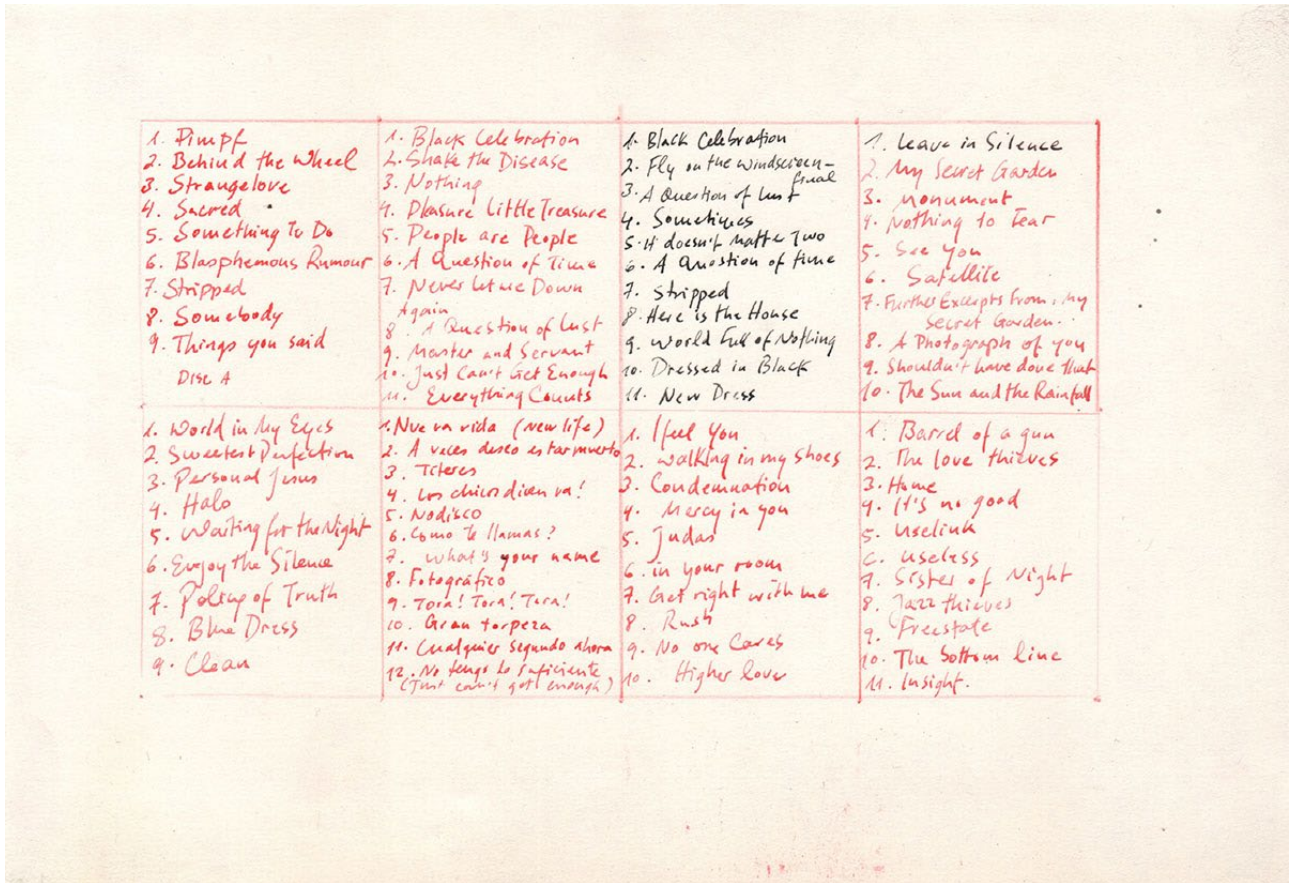 1. Pimpf
2. Behind the Wheel
3. Strangelove
4. Sacred
5. Something To Do
6. Blasphemous Rumour
7. Stripped
8. Somebody
9. Things you said
Disc A
1. Black Celebration
2. Shake the Disease
3. Nothing
4. Pleasure Little Treasure
5. People are People
6. A Question of Time
7. Never let me Down
Again
8. A Question of Lust
9. Master and Servant
10. Just Can't Get Enough
11. Everything Counts
1. Black Celebration
2. Fly on the windscreen-
final
3. A Question of Lust
4. Sometimes
5. it doesn't matte Two
6. A Question of time
7. Stripped
8. Here is the House
9. World Full of Nothing
10. Dressed in Black
11. New Dress
1. Leave in Silence
2. My Secret Garden
3. Monument
4. Nothing to Fear
5. See You
6. Satellite
7. Further Excerpts From: My
Secret Garden.
8. A Photograph of you
9. Shouldn't have done that
10. The Sun and the Rainfall
1. World in My Eyes
2. Sweetest Perfection
3. Personal Jesus
4. Halo
5. Waiting for the Night
6. Enjoy the Silence
7. Policy of Truth
8. Blue Dress
9. Clean
1. Nueva vida (new life)
2. A veces deseo estar muerto
3. Titeres
4. Los chicos dicen va!
5. Nodisco
6. Como te llamas?
7. What's your name
8. Fotográfico
9. Tora! Tora! Tora!
10. Gran torpeza
11. Cualquier segundo ahora
12. No tengo lo suficiente
(Just can't get enough)
1. I feel You
2. walking in my shoes
3. Condemnation
4. Mercy in you
5. Judas
6. in your room
7. Get right with me
8. Rush
9. No one Cares
10. Higher love
1. Barrel of a gun
2. The love thieves
3. Home
4. It's no good
5. Uselink
6. useless
7. Sister of Night
8. Jazz thieves
9. Freestate
10. The bottom line
11. Insight.